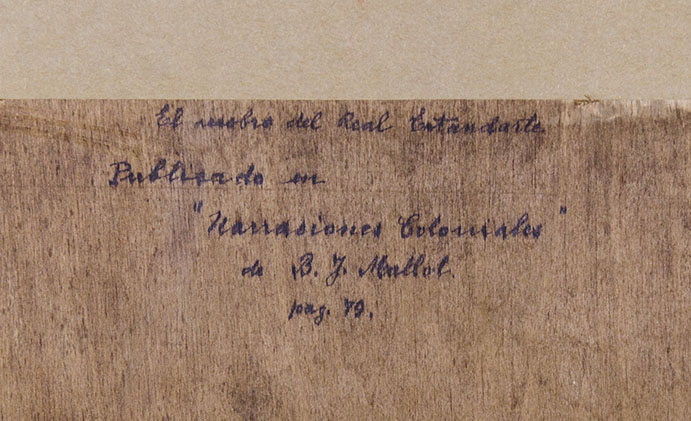 El del Real Estandarte
Publicado en
"Narraciones Coloniales"
de B. J. Mallol.
pag. 79.